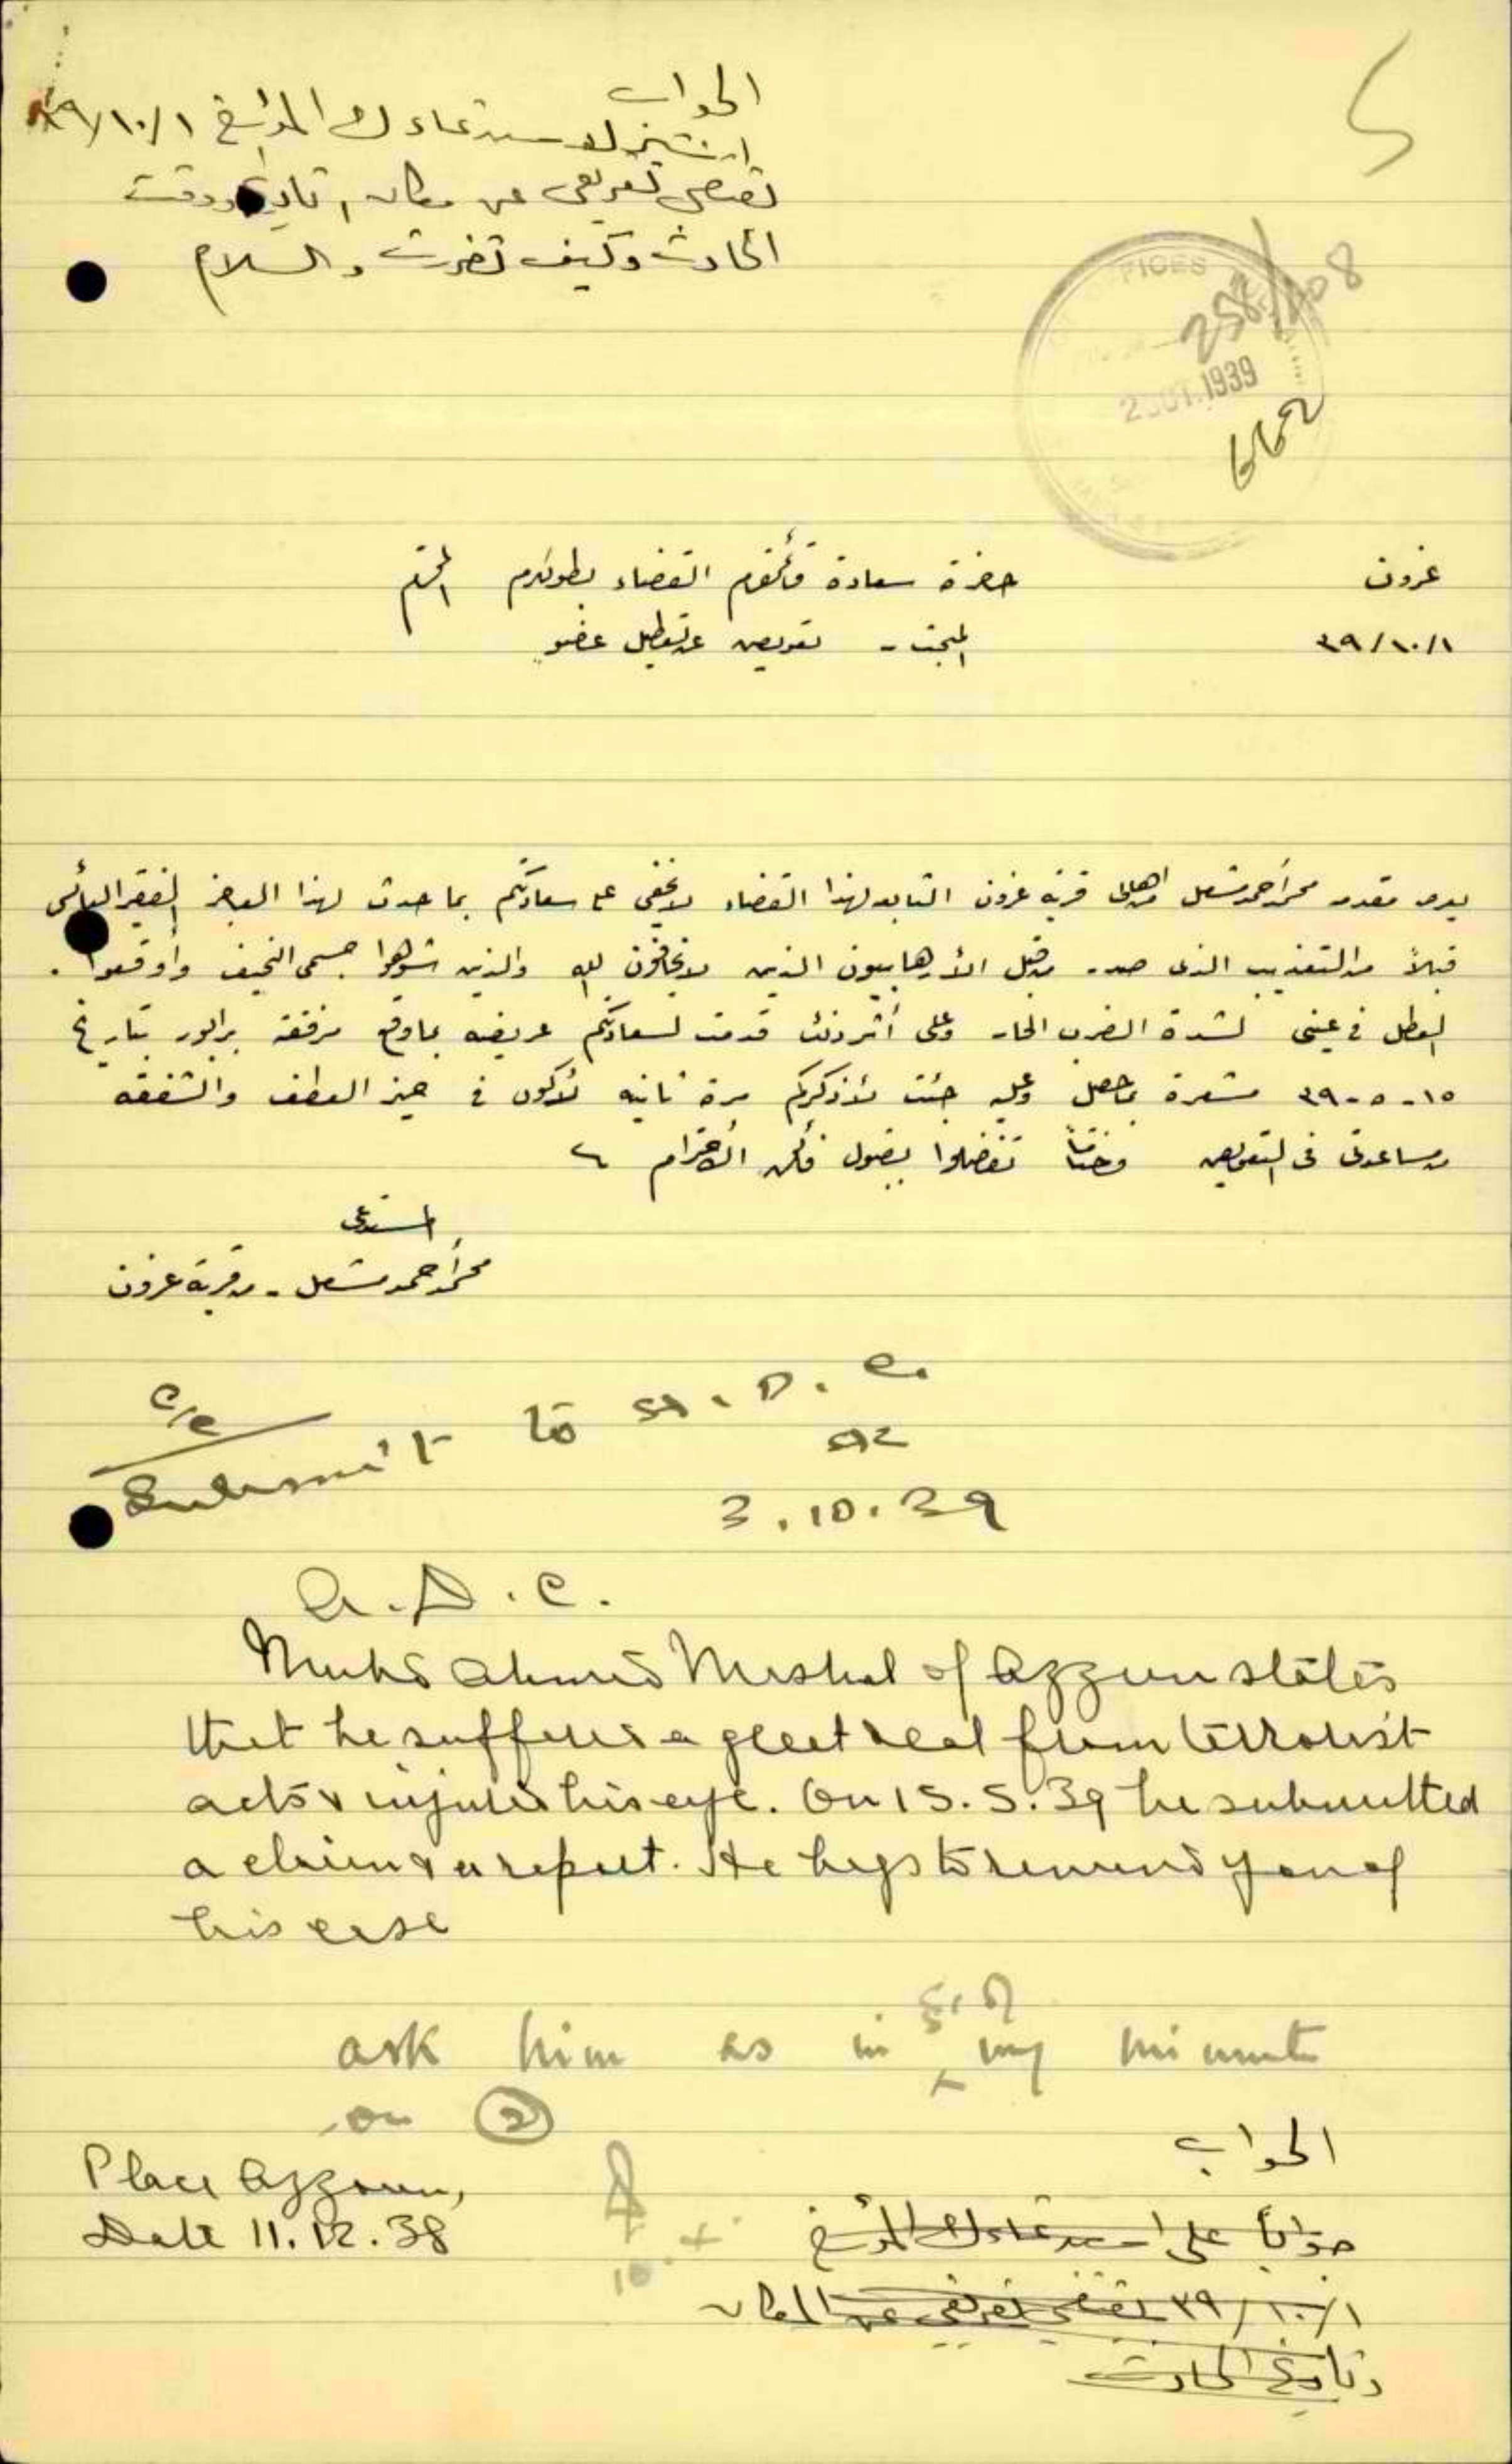 الجواب
استدعاءك المؤرخ ٣٩/١٠/١
تقتضي تعريفي عن مكان، تاريخ ووقت
الحادث وكيف تضررت والسلام
5
OFFICES
258/108
2 OCT. 1939
662
عزون
حضرة سعادة قائمقام القضاء بطولكرم المحترم
٣٩/١٠/١
المبحث - تعويض عن تعطيل عضو
محمد احمد مشعل من اهالي قرية عزون التابعه لهذا القضاء لا يخفى على سعادتكم بما حدث لهذا العاجز الفقير البائس
قبلاً من التعذيب الذي صدر من قبل الأرهابيون الذين لا يخافون الله والذين شوهوا جسمي النحيف وأوقعوا
العطل في عيني لشدة الضرب الحار وعلى أثر ذلك قدمت لسعادتكم عريضه بما وقع مرفقة برابور بتاريخ
١٥-٥-٣٩ مشعرة بما حصل وعليه جئت لأذكركم مرة ثانيه لأكون في حيز العطف والشفقه
ومساعدتي في التعويض وختاماً تفضلوا بقبول فائق الأحترام
المستدعي
محمد احمد مشعل - من قرية عزون
C/C
Submit to A.D.C.
3.10.39
A.D.C.
Muhd Ahmed Meshal of Azzun states
that he suffered a great deal from terrorist
acts & injured his eye. On 15.5.39 he submitted
a claim & a report. He begs to remind you of
his case
ask him as in my minute
on (2)
Place Azzoun,
Date 11.12.38
4.10
الجواب
جواباً على استدعاءك المؤرخ
٣٩/١٠/١ تقتضي تعريفي عن المكان
وتاريخ الحادث